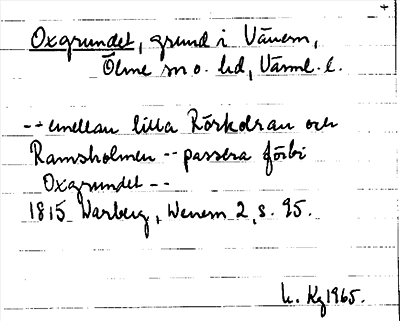 Oxgrundet, grund i Vänern,
Ölme sn o. hd, Värml. l.
-- emellan lilla Rörkdran och
Ramsholmen -- passera förbi
Oxgrundet --
1815 Warberg, Wenern 2, s. 95.
Kg 1965.